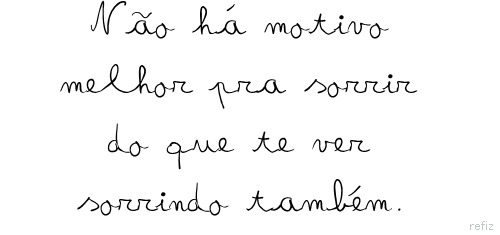 Não há motivo
melhor pra sorrir
do que te ver
sorrindo também.
refiz